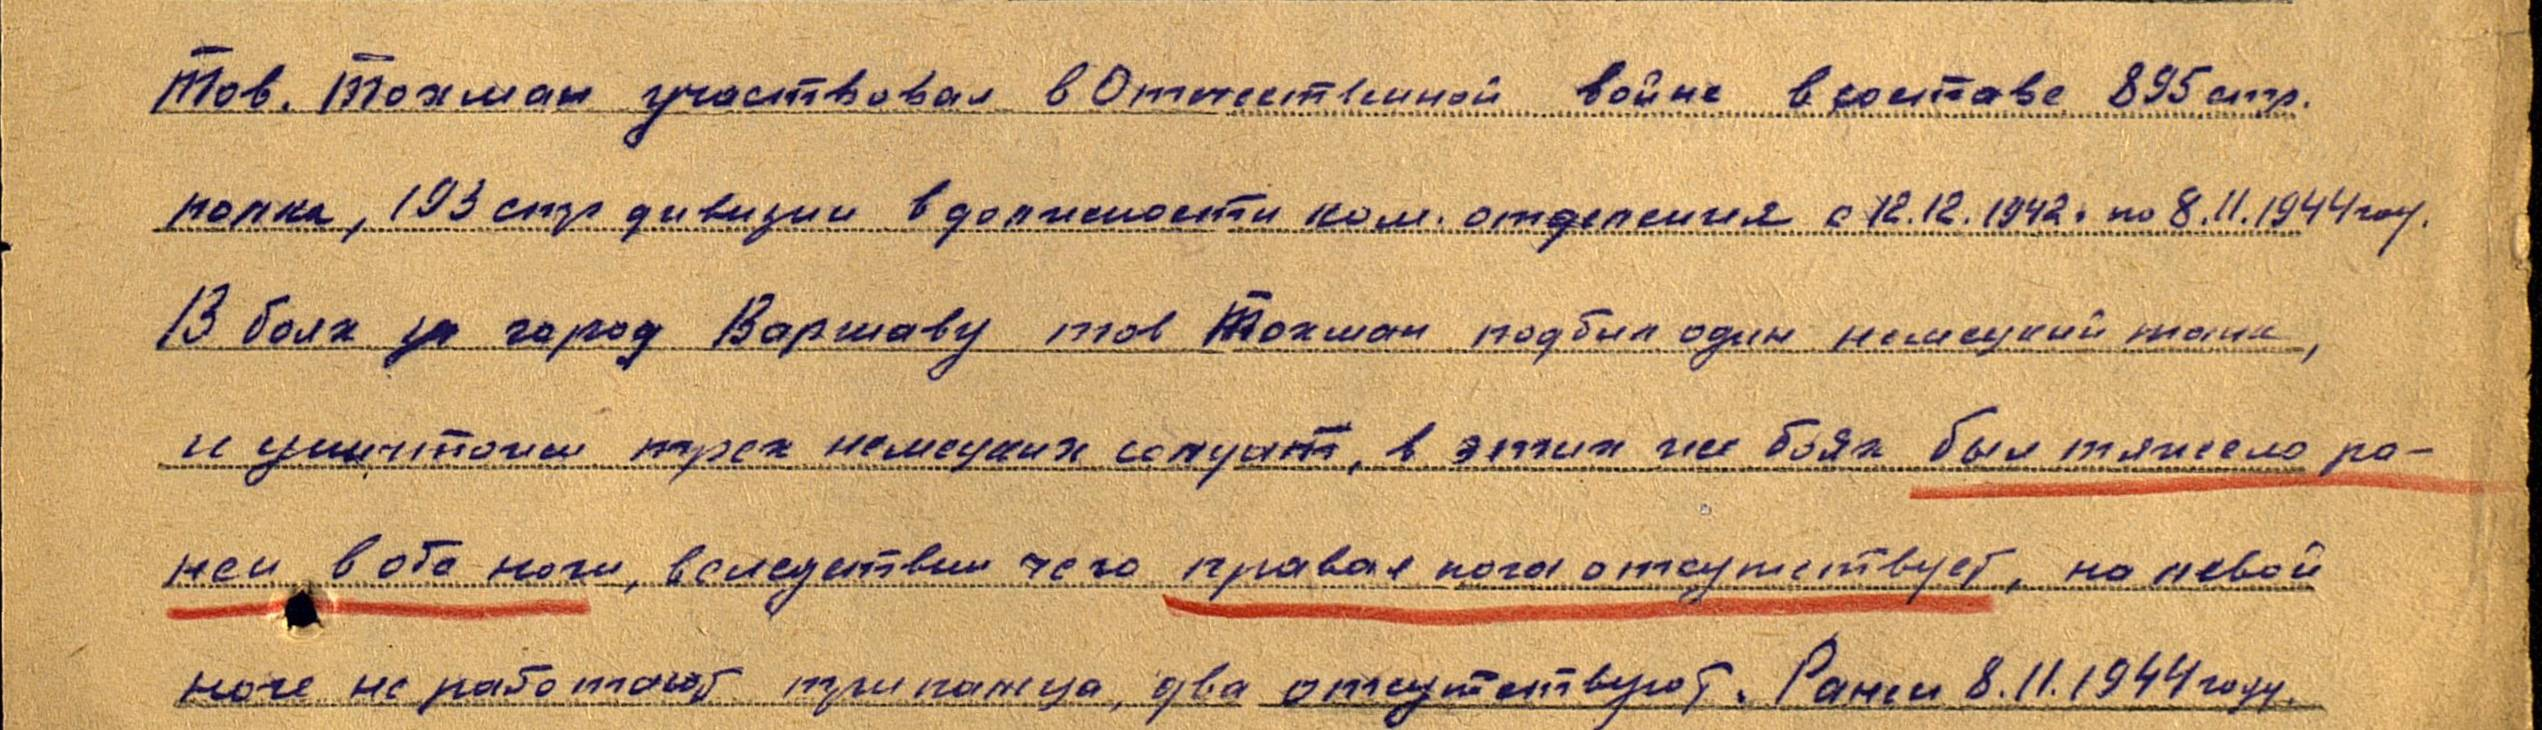 Тов. Тохман участвовал в Отечественной войне в составе 895 стр.
полка, 193 стр дивизии в должности ком. отделения с 12.12.1942г по 8.11.1944 году.
В боях за город Варшаву тов Тохман подбил один немецкий танк,
и уничтожил трех немецких солдат, в этих же боях был тяжело ра-
нен в обе ноги, вследствии чего правая нога отсутствует, на левой
ноге не работают три пальца, два отсутствуют. Ранен 8.11.1944 году.